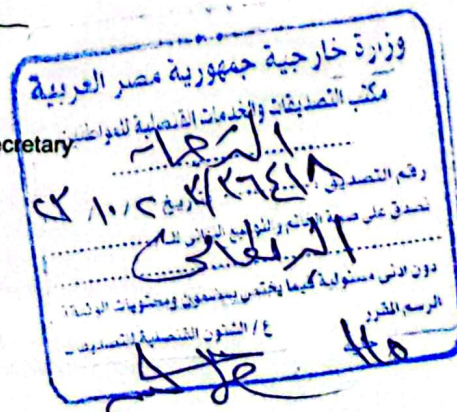 وزارة خارجية جمهورية مصر العربية
مكتب التصديقات والخدمات القنصلية للمواطنين
ecretary
رقم التصديق ٣/٣٦٤١٨ تاريخ ٢٣/١٠/٢
نصدق على صحة الخاتم والتوقيع
دون ادنى مسئولية فيما يختص بمضمون ومحتويات الوثيقة
الرسم المقرر
ع / الشئون القنصلية للتصديقات